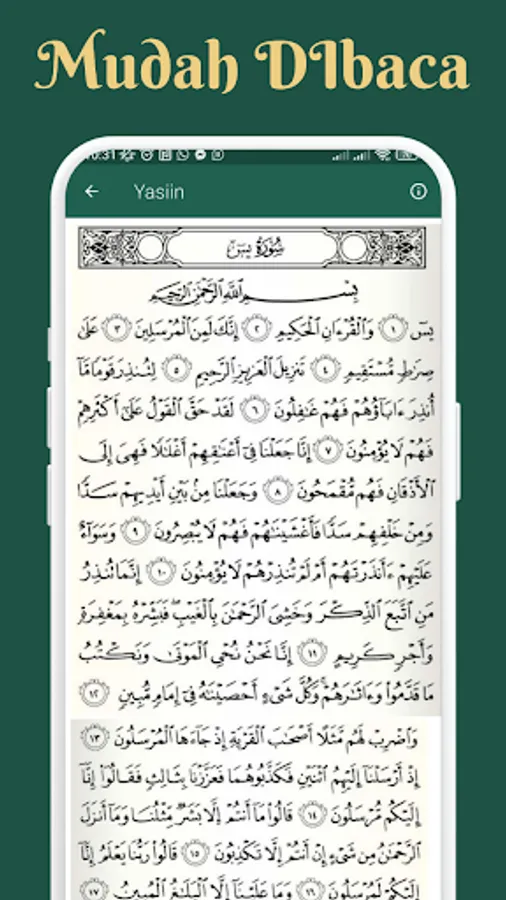 Mudah DIbaca
10:31
Yasiin
سُورَةُ يسٓ
بِسْمِ ٱللَّهِ ٱلرَّحْمَٰنِ ٱلرَّحِيمِ
يسٓ ١ وَٱلْقُرْءَانِ ٱلْحَكِيمِ ٢ إِنَّكَ لَمِنَ ٱلْمُرْسَلِينَ ٣ عَلَىٰ
صِرَٰطٍ مُّسْتَقِيمٍ ٤ تَنزِيلَ ٱلْعَزِيزِ ٱلرَّحِيمِ ٥ لِتُنذِرَ قَوْمًا مَّآ
أُنذِرَ ءَابَآؤُهُمْ فَهُمْ غَٰفِلُونَ ٦ لَقَدْ حَقَّ ٱلْقَوْلُ عَلَىٰٓ أَكْثَرِهِمْ
فَهُمْ لَا يُؤْمِنُونَ ٧ إِنَّا جَعَلْنَا فِىٓ أَعْنَٰقِهِمْ أَغْلَٰلًا فَهِىَ إِلَى
ٱلْأَذْقَانِ فَهُم مُّقْمَحُونَ ٨ وَجَعَلْنَا مِنۢ بَيْنِ أَيْدِيهِمْ سَدًّا
وَمِنْ خَلْفِهِمْ سَدًّا فَأَغْشَيْنَٰهُمْ فَهُمْ لَا يُبْصِرُونَ ٩ وَسَوَآءٌ
عَلَيْهِمْ ءَأَنذَرْتَهُمْ أَمْ لَمْ تُنذِرْهُمْ لَا يُؤْمِنُونَ ١٠ إِنَّمَا تُنذِرُ
مَنِ ٱتَّبَعَ ٱلذِّكْرَ وَخَشِىَ ٱلرَّحْمَٰنَ بِٱلْغَيْبِ ۖ فَبَشِّرْهُ بِمَغْفِرَةٍ
وَأَجْرٍ كَرِيمٍ ١١ إِنَّا نَحْنُ نُحْىِ ٱلْمَوْتَىٰ وَنَكْتُبُ
مَا قَدَّمُوا۟ وَءَاثَٰرَهُمْ ۚ وَكُلَّ شَىْءٍ أَحْصَيْنَٰهُ فِىٓ إِمَامٍ مُّبِينٍ ١٢
وَٱضْرِبْ لَهُم مَّثَلًا أَصْحَٰبَ ٱلْقَرْيَةِ إِذْ جَآءَهَا ٱلْمُرْسَلُونَ ١٣
إِذْ أَرْسَلْنَآ إِلَيْهِمُ ٱثْنَيْنِ فَكَذَّبُوهُمَا فَعَزَّزْنَا بِثَالِثٍ فَقَالُوٓا۟ إِنَّآ
إِلَيْكُم مُّرْسَلُونَ ١٤ قَالُوا۟ مَآ أَنتُمْ إِلَّا بَشَرٌ مِّثْلُنَا وَمَآ أَنزَلَ
ٱلرَّحْمَٰنُ مِن شَىْءٍ إِنْ أَنتُمْ إِلَّا تَكْذِبُونَ ١٥ قَالُوا۟ رَبُّنَا يَعْلَمُ إِنَّآ
إِلَيْكُمْ لَمُرْسَلُونَ ١٦ وَمَا عَلَيْنَآ إِلَّا ٱلْبَلَٰغُ ٱلْمُبِينُ ١٧